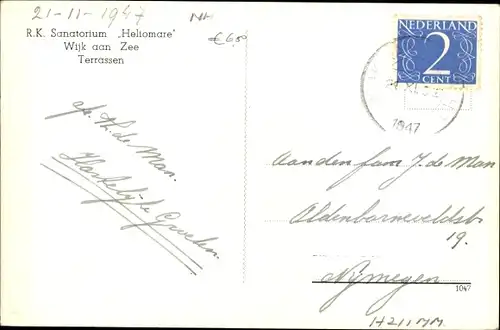 21-11-1947
NH
€ 6,50
R.K. Sanatorium „Heliomare"
Wijk aan Zee
Terrassen
NEDERLAND
2
CENT
XI
1947
afz. Th. de Man.
Hartelijke Groeten.
Aan den fam J. de Man
Oldenbarneveldtstr.
19.
Nijmegen
1047
HZ11MM